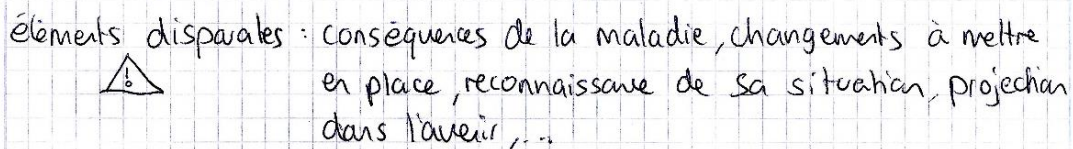 éléments disparates : conséquences de la maladie, changements à mettre
en place, reconnaissance de sa situation, projection
dans l'avenir, ...